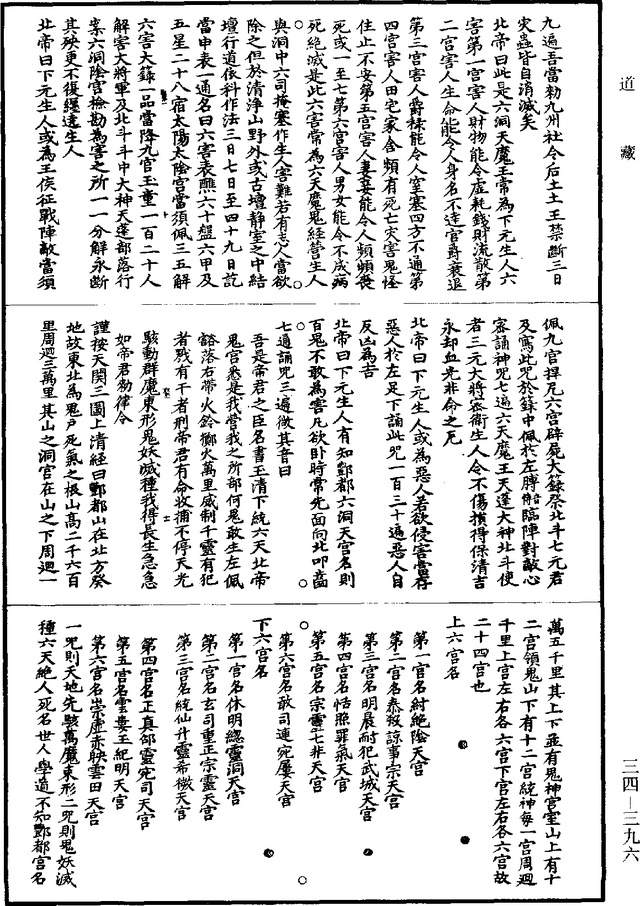 九遍吾當勑九州社令后土土王禁斷三日
灾蟲皆自消滅矣
北帝曰此是六洞天魔王常為下元生人六
害第一宮害人財物能令虛耗錢財流散第
二宮害人生命能令人身名不達官爵衰退
第三宮害人爵祿能令人窒塞四方不通第
四宮害人田宅家舍頻有死亡灾害鬼怪
住止不安第五宮害人妻妾能令人頻頻喪
死或一至七第六宮害人男女能令不成病
死絕滅是此六害常為六天魔鬼經營生人
與洞中六司掩塞作生人害難若有志人當欲
除之但於清淨山野外或古壇靜室之中結
壇行道依科作法三日七日至四十九日訖
當申表一通名曰六害表醮六十盤六甲及
五星二十八宿太陽太陰宮當須佩三五解
六害大籙一品當降九官玉童一百二十人
解害大將軍及北斗斗中大神天蓬部落行
案六洞陰官檢勘為害之所一一分解永斷
其殃更不復纏遶生人
北帝曰下元生人或為王侯征戰陣敵當須
佩九宮捍厄六宮辟屍大籙祭北斗七元君
及寫此咒於籙中佩於左膊臨陣對敵心
密誦神咒七遍六天魔王天蓬大神北斗使
者三元大將密衛生人令不傷損得保清吉
永却血光非命之死
北帝曰下元生人或為惡人若欲侵害當存
惡人於左足下誦此咒一百三十遍惡人自
反凶為吉
北帝曰下元生人有知酆都六洞天宮名則
百鬼不敢為害凡欲卧時常先面向北叩齒
七過誦咒三遍微其音曰
吾是帝君之臣名書玉清下統六天北帝
鬼官悉是我當我之所部何鬼敢生左佩
豁落右帶火鈴擲火萬里威制千靈有犯
者戮有干者刑帝君有命收捕不停天光
駭動群魔束形鬼妖滅種我得長生急急
如帝君勑律令
謹按天関三圖上清經曰酆都山在北方癸
地故東北為鬼戶死氣之根山高二千六百
里周迴三萬里其山之洞宮在山之下周迴一
萬五千里其上下並有鬼神宮室山上有十
二宮領鬼山下有十二宮統神每一宮周迴
千里上宮左右各六宮下宮左右各六宮故
二十四宮也
上六宮名
第一宮名紂絕陰天宮
第二宮名泰殺諒事宗天宮
第三宮名明晨耐犯武城天宮
第四宮名恬照罪氣天宮
第五宮名宗靈七非天宮
第六宮名敢司連宛屢天宮
下六宮名
第一宮名休明總靈洞天宮
第二宮名玄司重正宗靈天宮
第三宮名統仙升靈希微天宮
第四宮名正真部靈宛司天宮
第五宮名雲婁王紀明天宮
第六宮名崇虛赤映雲田天宮
一咒則天地先駭萬魔束形二咒則鬼妖滅
種六天絕人死名世人學道不知酆都宮名
道藏
三四—三九六